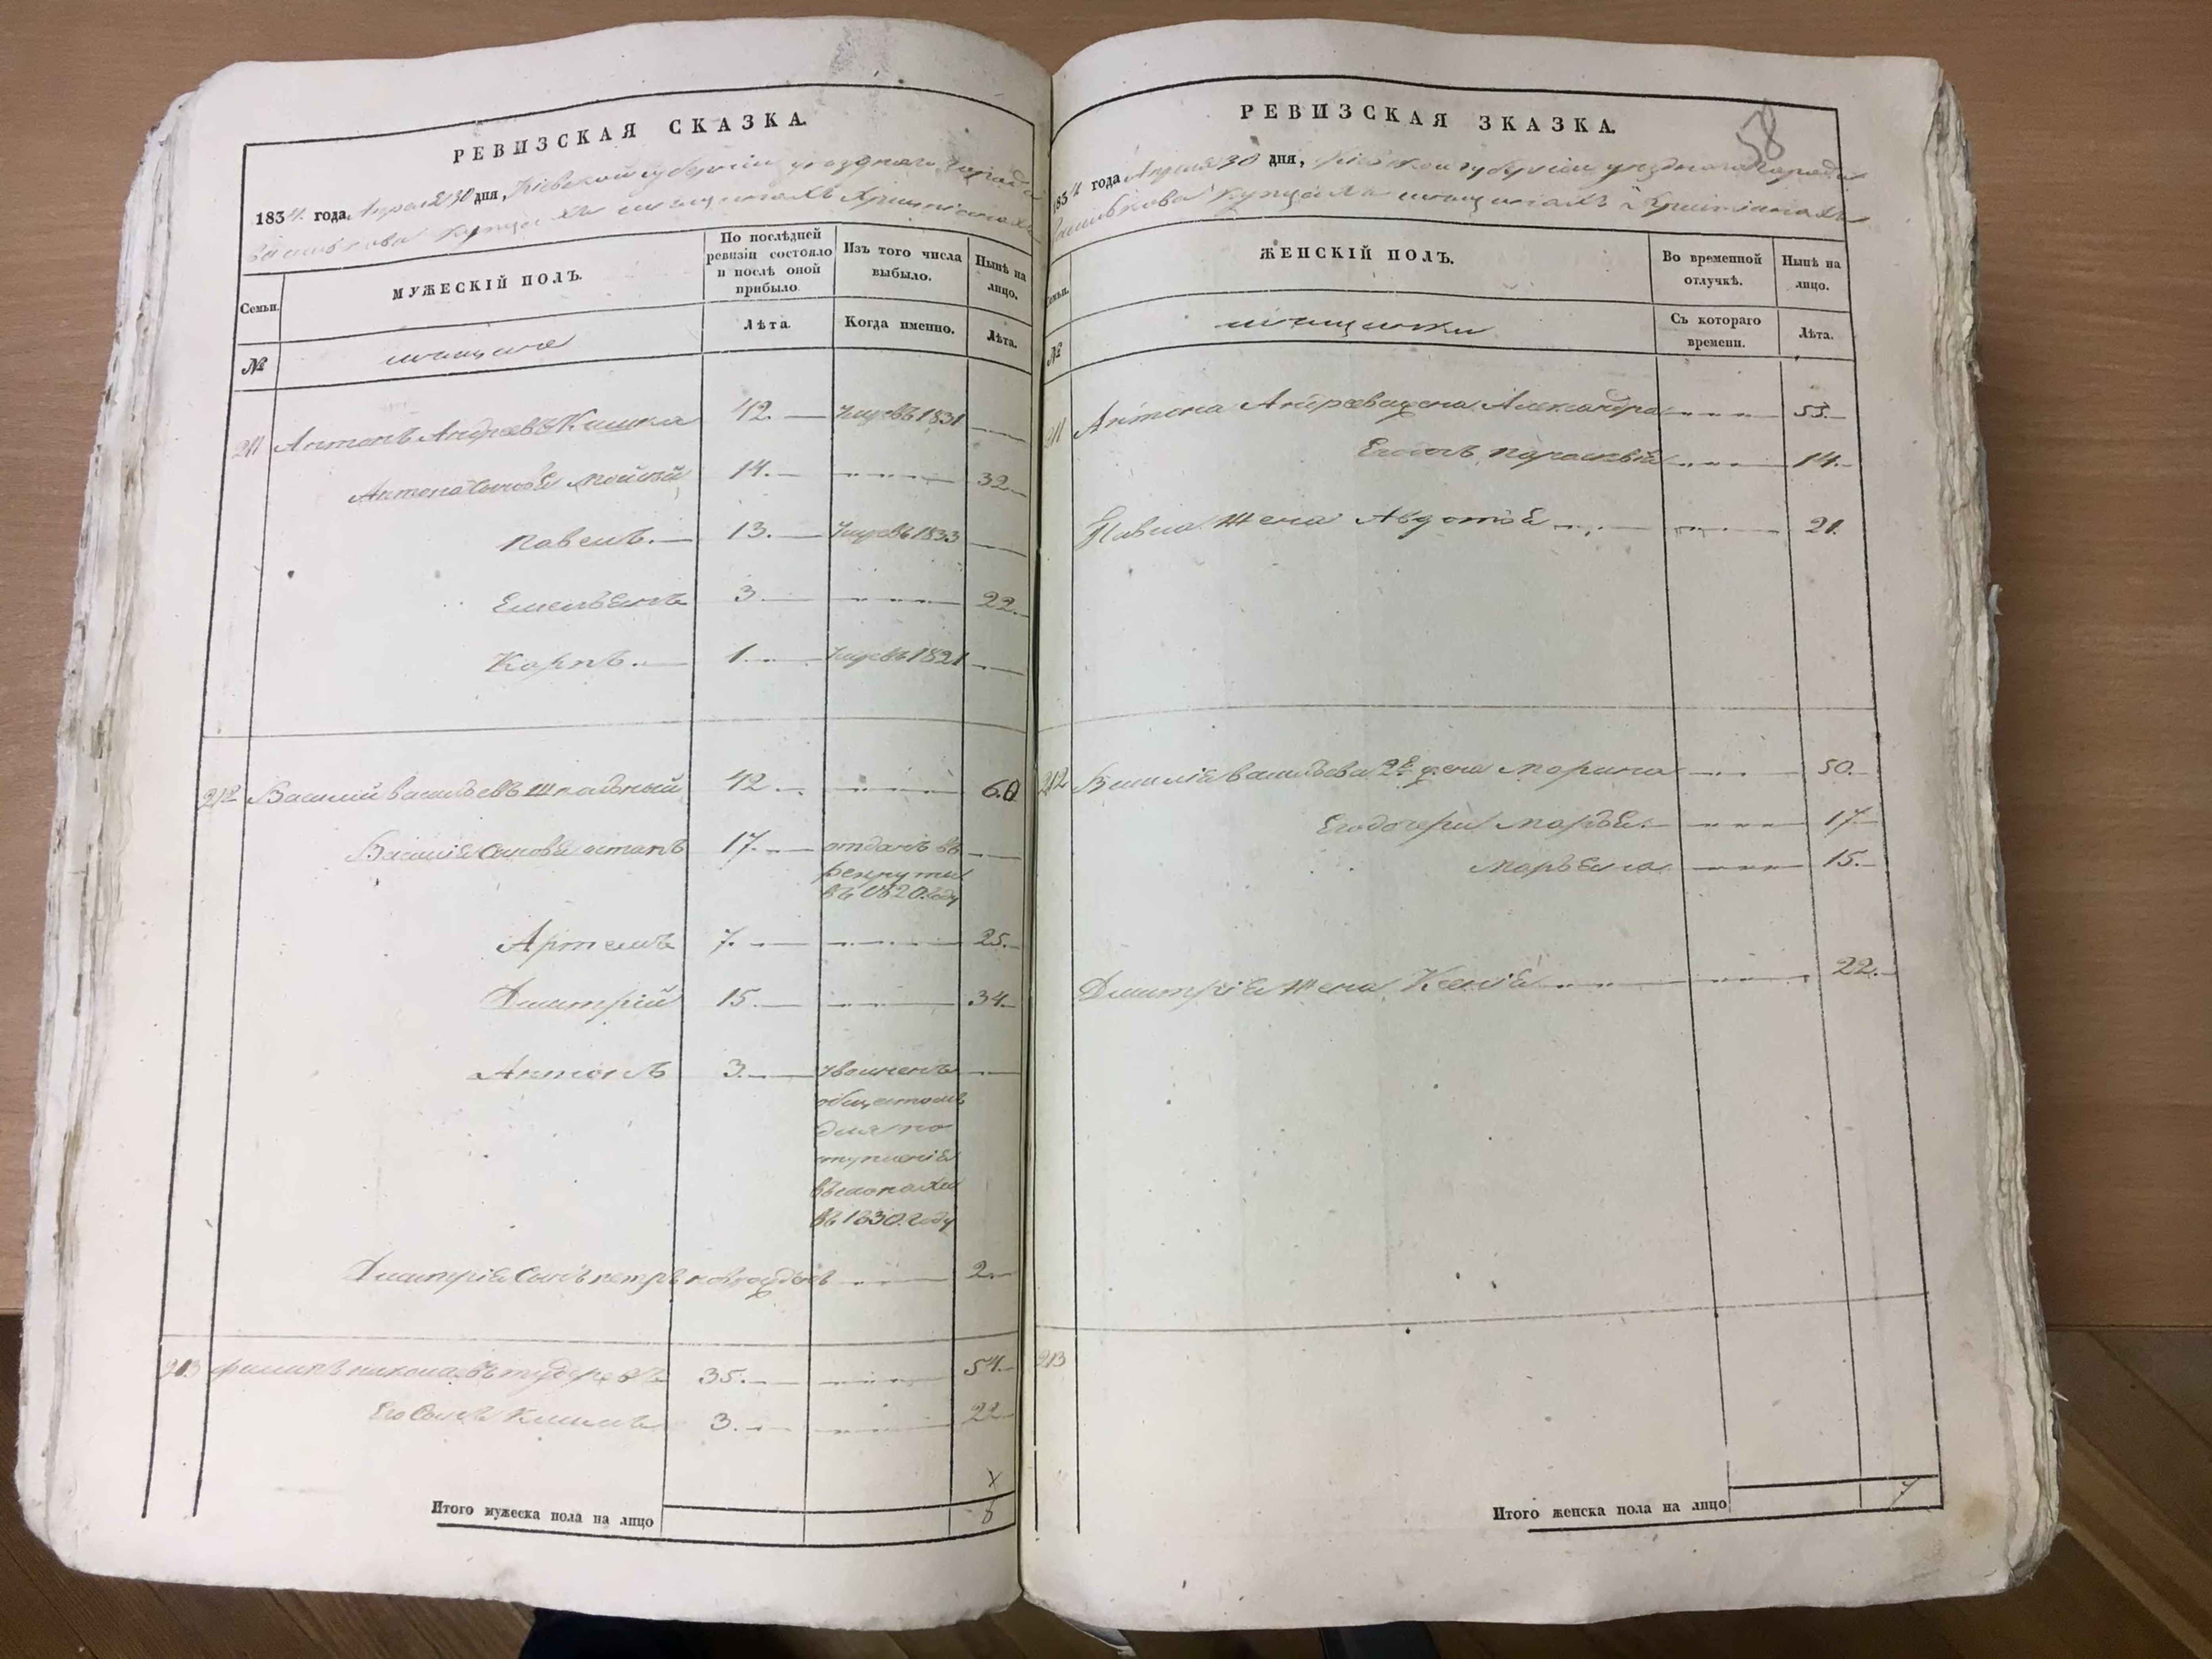 РЕВИЗСКАЯ СКАЗКА.
1834. года Апреля 30 дня, Кіевской губерніи уезднаго города
Василькова купцахъ мещанахъ Християнахъ
Семьи.
МУЖЕСКІЙ ПОЛЪ.
По послѣдней ревизіи состояло и послѣ оной прибыло.
Изъ того числа выбыло.
Нынѣ на лицо.
№
мещане
Лѣта.
Когда именно.
Лѣта.
211 Антонъ Андреевъ Кишка 42. Умревъ 1831
Антона Сыновья Мойсей 14. 32
Павелъ. 13. Умревъ 1833
Емельянъ 3 22
Карпъ. 1. Умревъ 1821
212 Василий Васильевъ Шкальный 42 60
Василія Сыновья остапъ 17. отданъ въ
рекруты
въ 1820. году
Артемъ 7. 25.
Дмитрій 15. 34.
Антонъ 3. уволненъ
обществомъ
для по
ступленія
въ монахи
въ 1830. году
Дмитрія Сынъ петръ новорожденъ 2
213 филипъ 35. 54.
Его Сынъ Климъ 3. 22
Итого мужеска пола на лицо
8
РЕВИЗСКАЯ ЗКАЗКА.
58
1834 года Апреля 30 дня, Кіевской губерніи уезднаго города
Василькова Купцахъ мещанахъ Християнахъ
Семьи.
ЖЕНСКІЙ ПОЛЪ.
Во временной отлучкѣ.
Нынѣ на лицо.
№
мещанки
Съ котораго времени.
Лѣта.
211 Антона Андреева жена Александра 53.
Его дочь параскевія 14.
Павла Жена Авдотья 21.
212 Василія Васильева 2я жена Марина 50.
Его дочери Марья. 17
Марьяна 15.
Дмитрія Жена Ксенія 22.
213
Итого женска пола на лицо
7